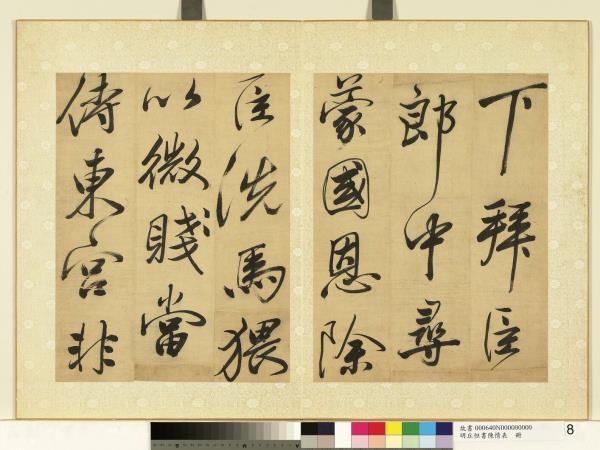 下拜臣
郎中尋
蒙國恩除
臣洗馬猥
以微賤當
侍東宮非
故書 000640N000000000
明丘但書陳情表 冊
8